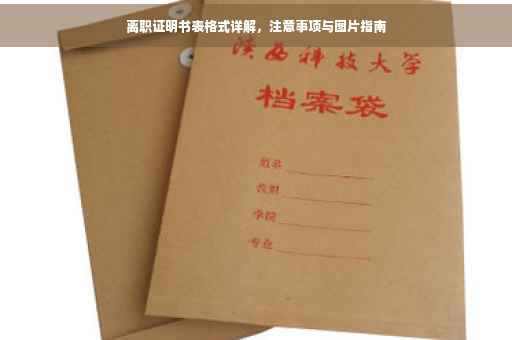 离职证明书表格式详解，注意事项与图片指南
陕西科技大学
档案袋
学院
专业